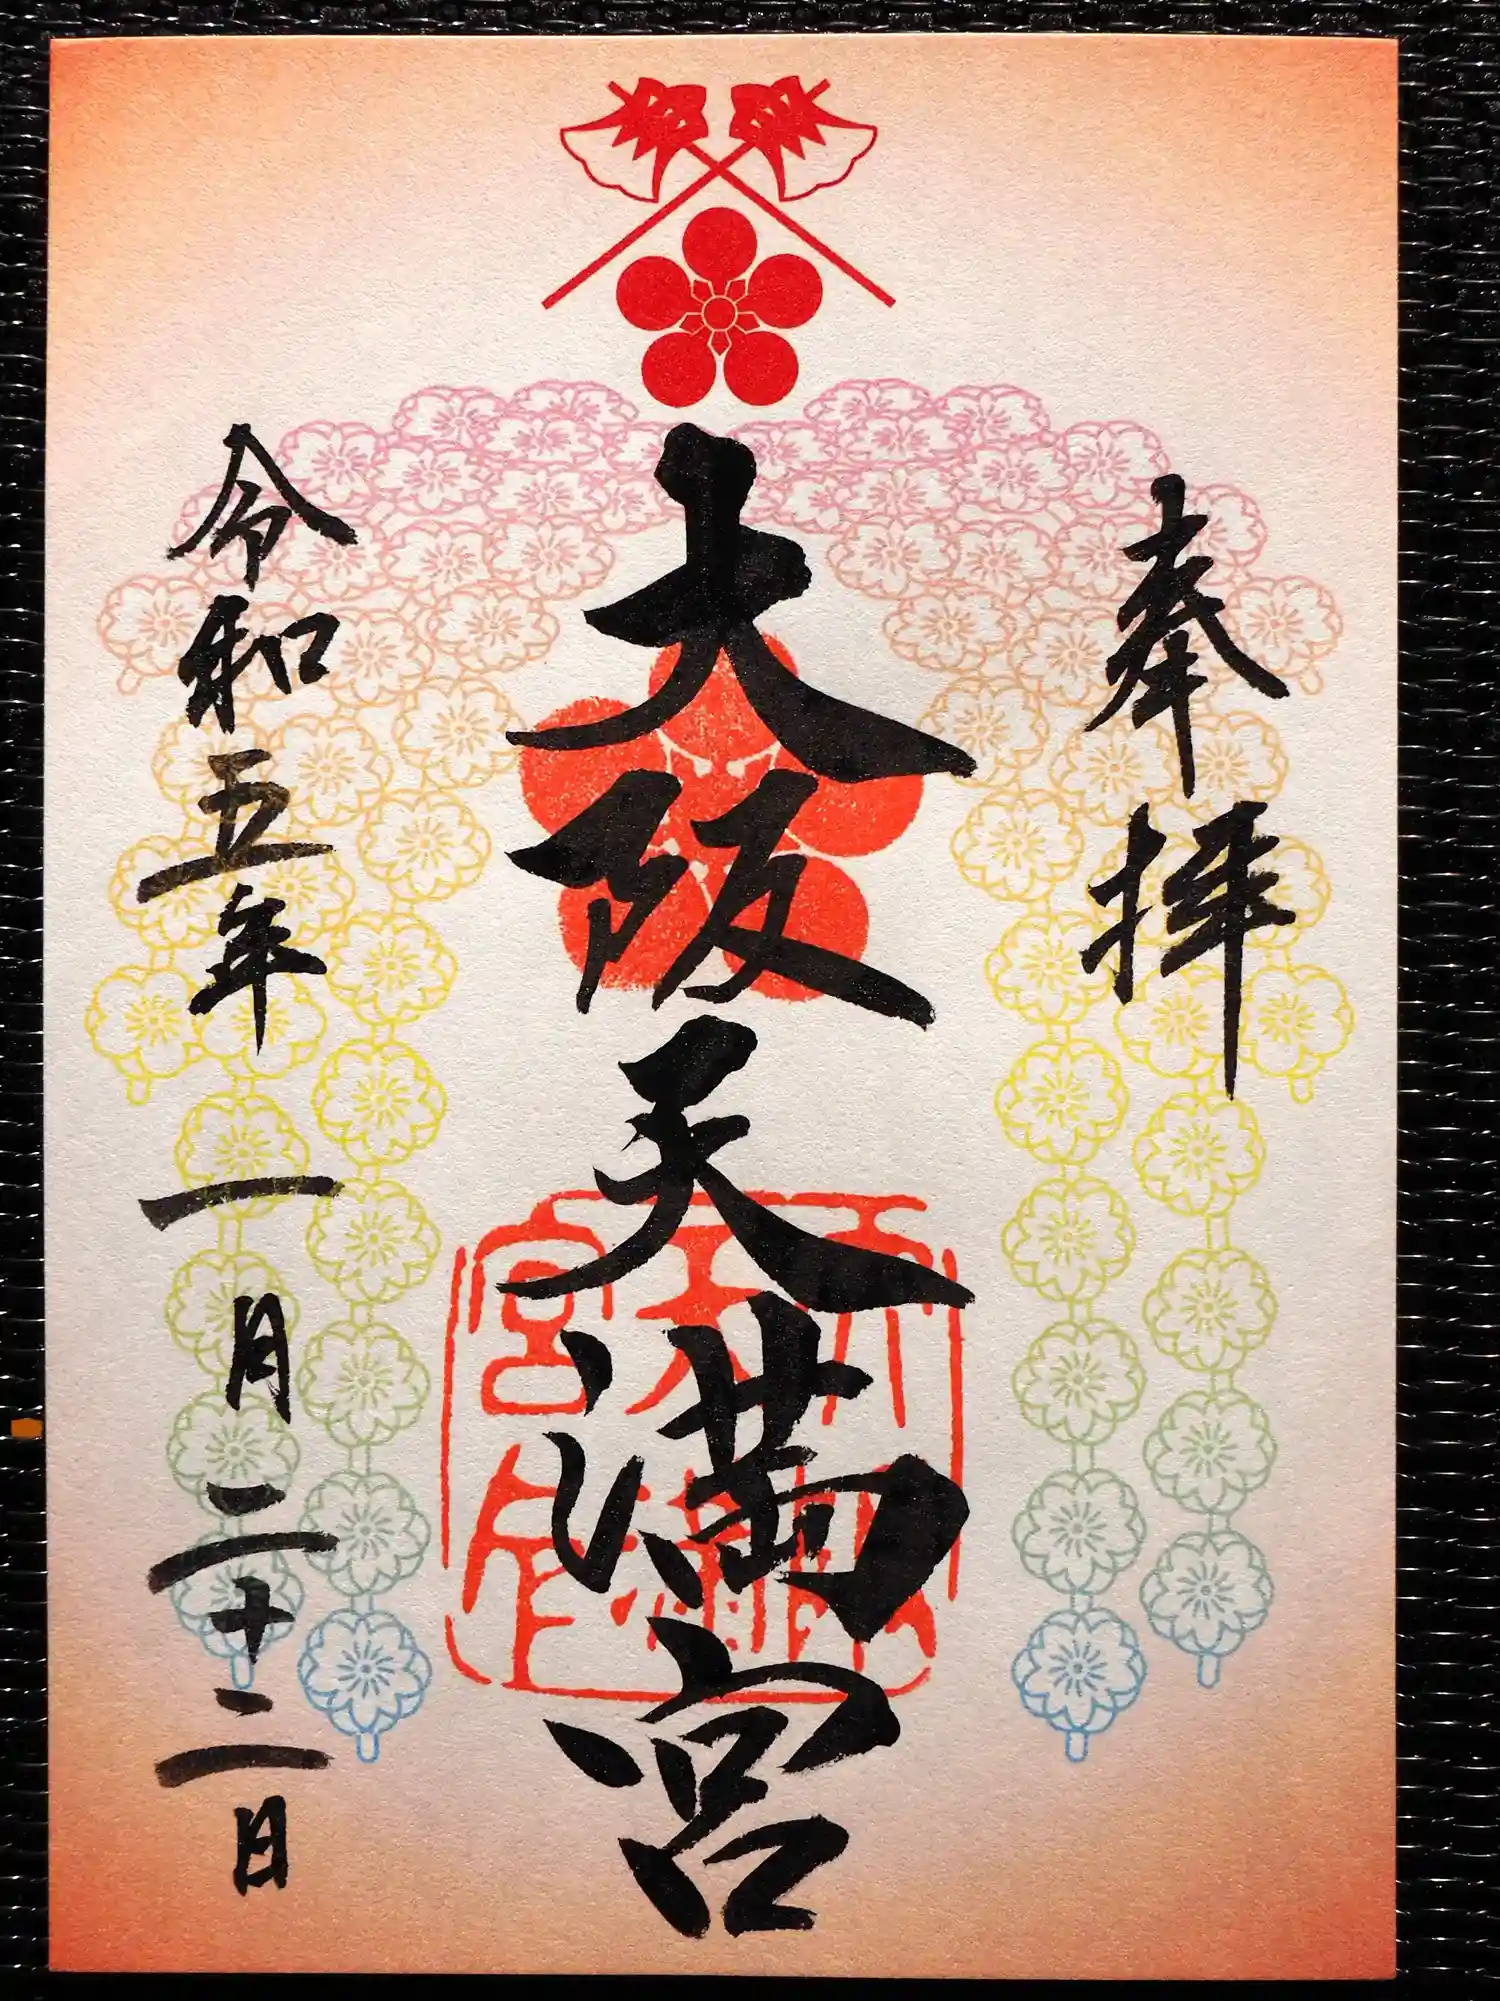 奉拝
大阪天満宮
令和五年一月二十二日